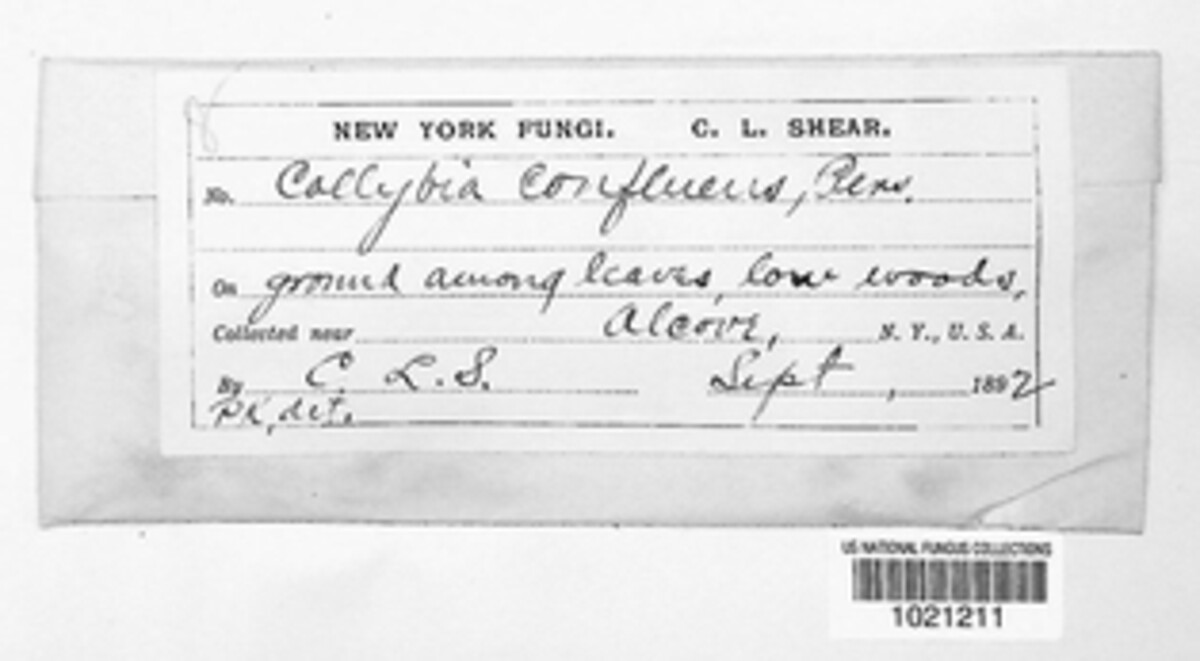 NEW YORK FUNGI. C. L. SHEAR.
No. Collybia confluens, Pers.
On ground among leaves, low woods,
Collected near Alcove, N. Y., U. S. A.
By C. L. S. Sept, 1892
Pk, det.
US NATIONAL FUNGUS COLLECTIONS
1021211